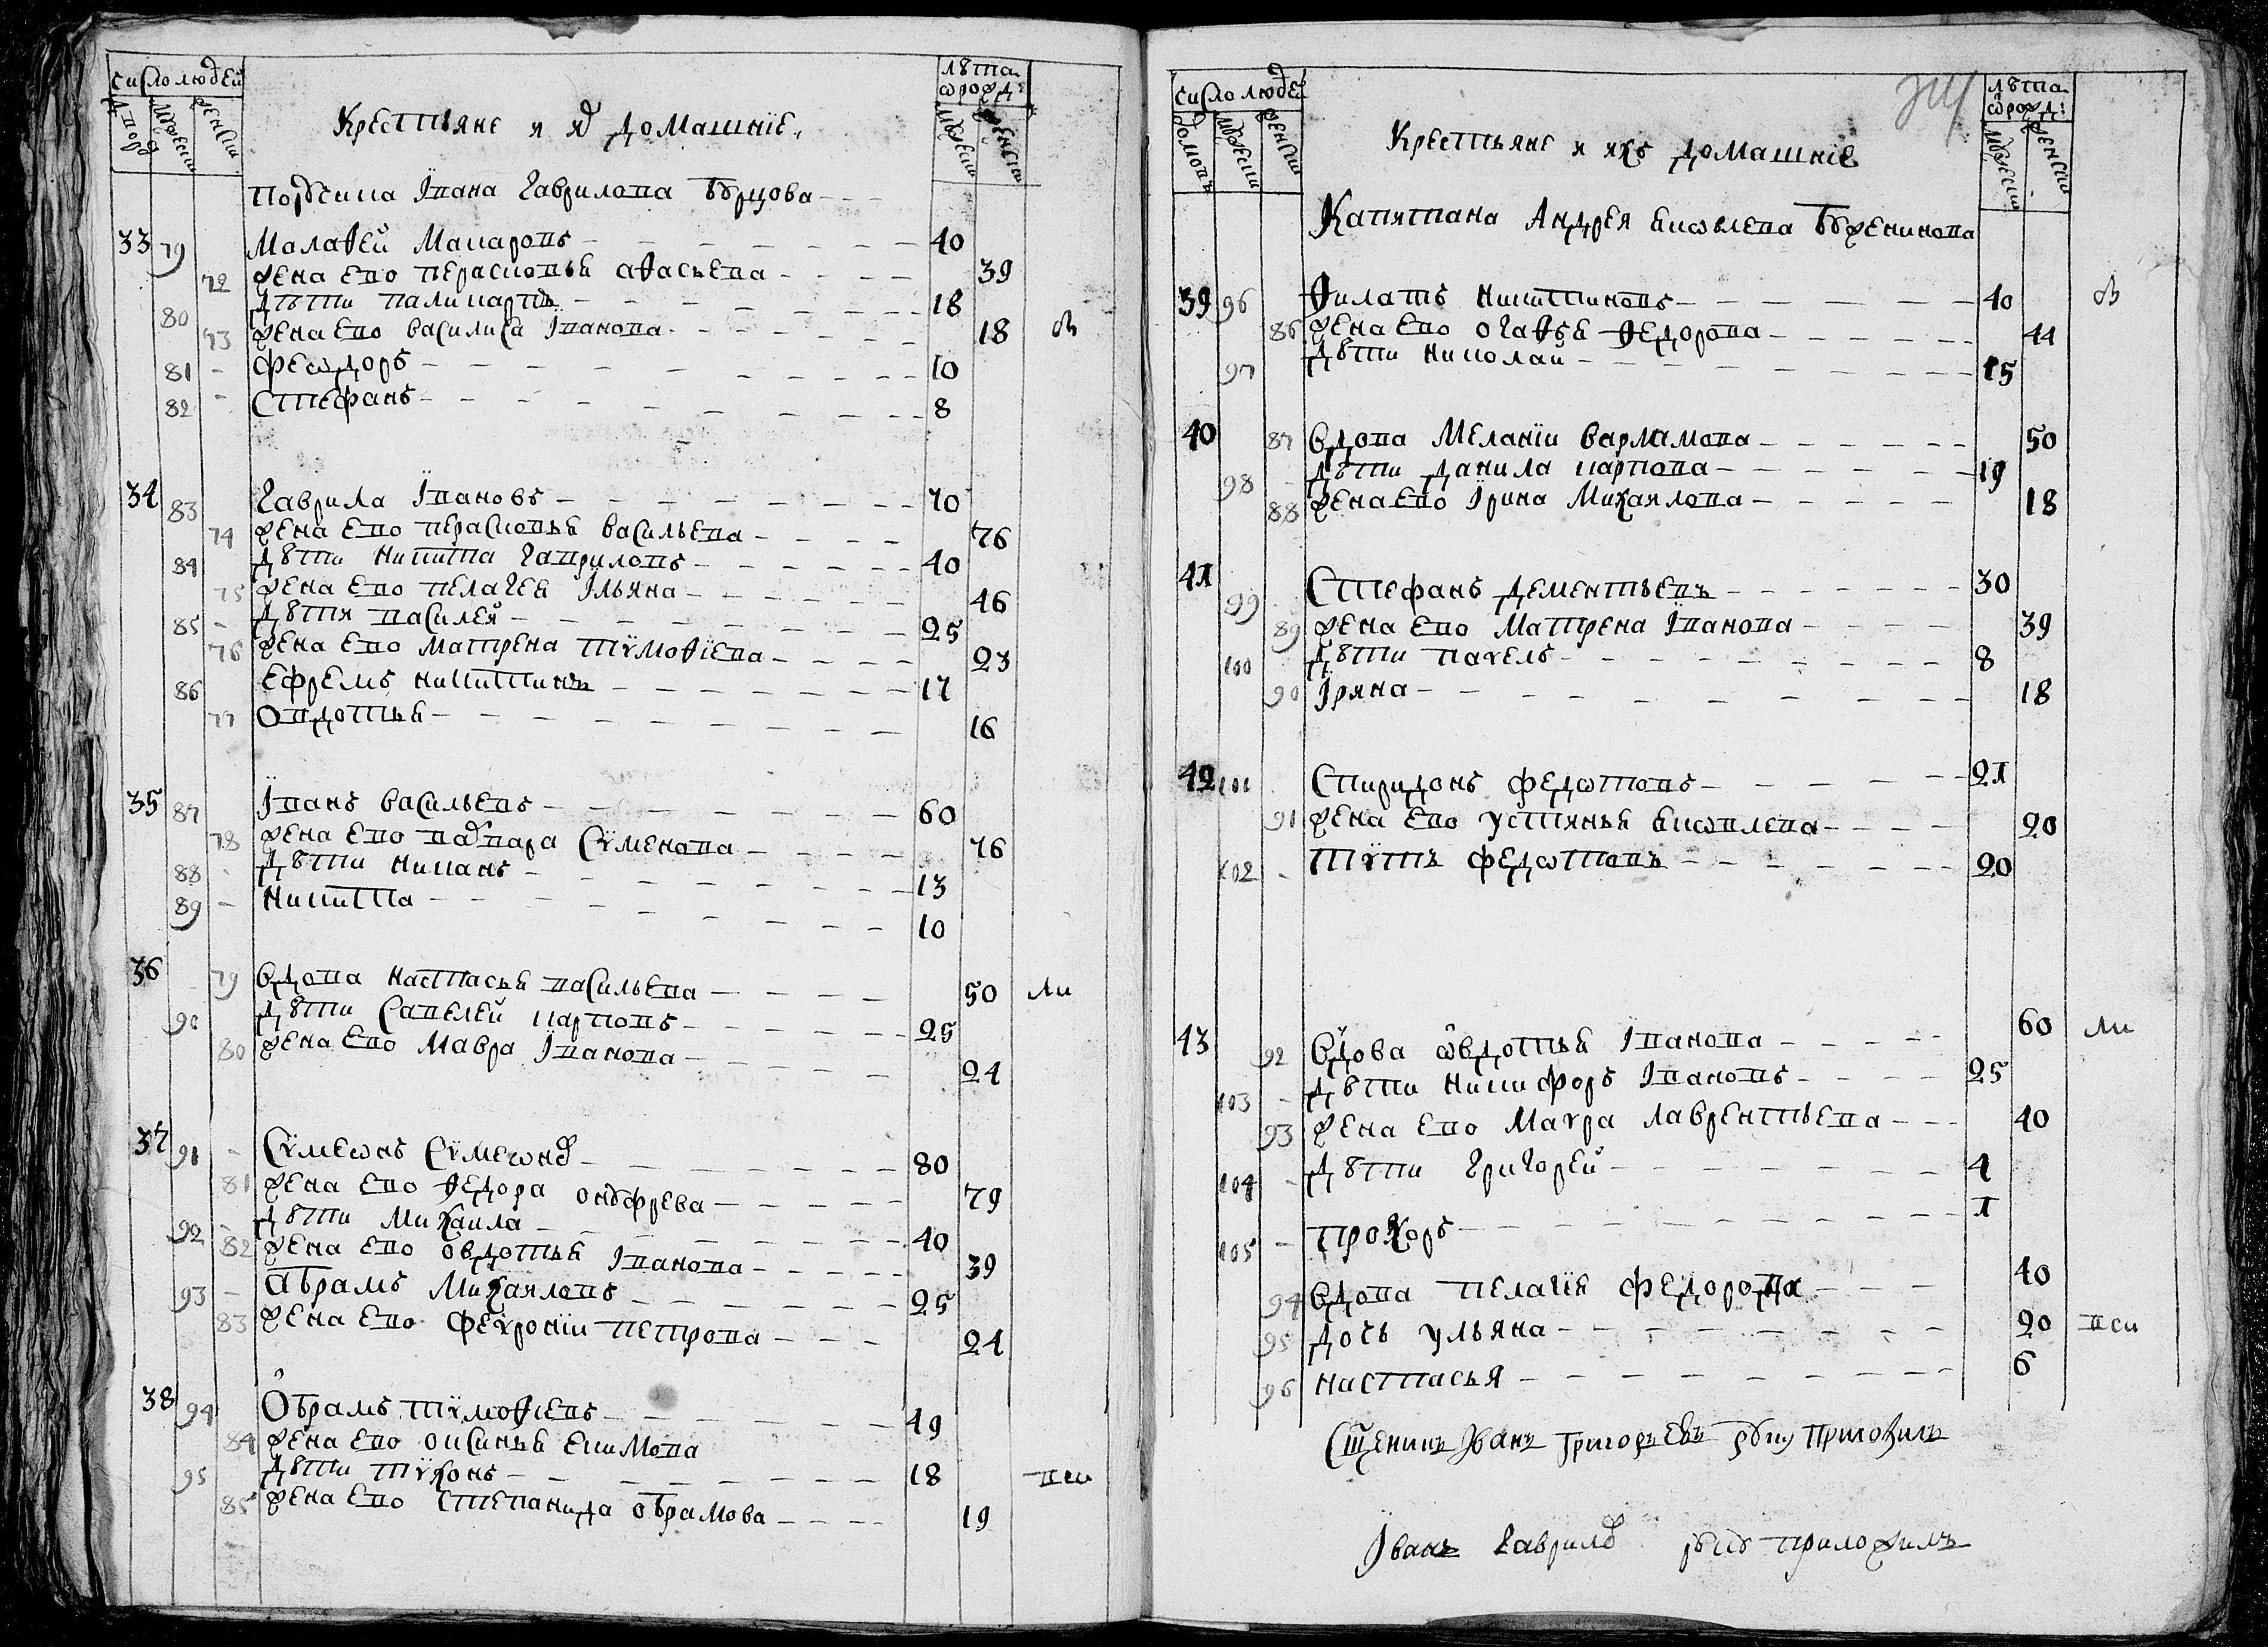 число людей
дворо
мужеск
женск
Крестьяне и их домашніе.
лѣта
ѿ рожд:
мужеск
женск
Порутчика Івана Гаврилова Бурцова
33 79 Малафей Макаровъ 40
72 жена ево Перасковья Афасьева 39
80 дѣти Паликарпъ 18
73 жена ево Василиса Іванова 18
81 Феѡдоръ 10
82 Стефанъ 8
34 83 Гаврила Івановъ 70
74 жена ево Перасковья Васильева 76
84 дѣти Никита Гавриловъ 40
75 жена ево Пелагея Ільяна 46
85 дѣти Василей 25
76 жена ево Матрена Тѵмофіева 23
86 Ефремъ Никитинъ 17
77 Овдотья 16
35 87 Іванъ Васильевъ 60
78 жена ево Варвара Сѵменова 76
88 дѣти Никанъ 13
89 Никита 10
36 79 вдова Настасья Васильева 50 ли
90 дѣти Савелей Карповъ 25
80 жена ево Мавра Іванова 24
37 91 Сѵмеѡнъ Сѵмеѡнов 80
81 жена ево Федора Онуфрева 79
92 дѣти Михаила 40
82 жена ево Овдотья Іванова 39
93 Абрамъ Михаиловъ 25
83 жена ево Феѵронiи Петрова 24
38 94 Обрамъ Тѵмофіевъ 49
84 жена ево Оксинья Екимова
95 дѣти Тѵхонъ 18 вси
85 жена ево Степанида Обрамова 19
число людей
домовъ
мужеск
женск
Крестьяне и ихъ домашніе
лѣта
ѿ рожд:
мужеск
женск
Капитана Андрея Яковлева Бѣженинова
39 96 Филатъ Никитиновъ 40
86 жена ево Огафья Федорова 44
97 дѣти Николай 15
40 87 вдова Меланіи Варламова 50
98 дѣти Данила Карпова 19
88 жена ево Ірина Михаилова 18
41 99 Стефанъ Дементьевъ 30
89 жена ево Матрена Іванова 39
100 дѣти Паѵелъ 8
90 Ірина 18
42 101 Спиридонъ Федѡтовъ 21
91 жена ево Устинья Якѡвлева 20
102 Тѵтъ Федѡтовъ 20
43 92 вдова Ѡвдотья Іванова 60 ли
103 дѣти Никифоръ Івановъ 25
93 жена ево Маѵра Лаврентьева 40
104 дѣти Григорей 4
105 Прохоръ 1
94 вдова Пелагія Федорова 40
95 дочь Ульяна 20 вси
96 Настасья 6
Сщеникъ Іванъ Григорьевъ руку приложилъ
Іванъ Гаврилов руку приложилъ